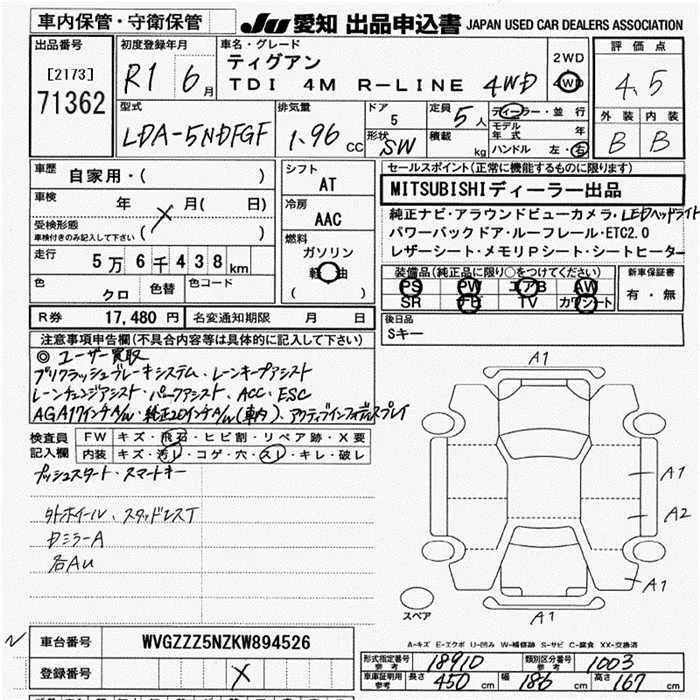 車内保管・守衛保管
JU 愛知 出品申込書 JAPAN USED CAR DEALERS ASSOCIATION
出品番号
[2173]
71362
初度登録年月
R1 6月
車名・グレード
ティグアン
TDI 4M R-LINE 4WD
2WD
4WD
評価点
4.5
外装 内装
B B
型式
LDA-5NDFGF
排気量
1.96 CC
ドア
5
形状
SW
定員 5人
積載 kg
ディーラー・並行
モデル年式 年
ハンドル 左・右
車歴
自家用・( )
車検 年 月( 日)
受検形態
車検付きのみ記入して下さい ( )
走行 5万6千438km
色 クロ
色替
色コード
シフト
AT
冷房
AAC
燃料
ガソリン
軽油
( )
セールスポイント(正常に機能するものに限ります)
MITSUBISHIディーラー出品
純正ナビ・アラウンドビューカメラ・LEDヘッドライト
パワーバックドア・ルーフレール・ETC2.0
レザーシート・メモリPシート・シートヒーター
装備品(純正品に限り○をつけてください)
PS PW エアB AW
SR TV カワシート
新車保証書
有・無
R券 17,480円 名変通知期限 月 日
後日品
Sキー
注意事項申告欄(不具合内容等は具体的に記入して下さい)
◎ユーザー買取
プリクラッシュブレーキシステム・レーンキープアシスト
レーンチェンジアシスト・パークアシスト・ACC・ESC
AGA17インチA/W・純正20インチA/W(車内)、アクティブインフォディスプレイ
検査員記入欄
FW キズ・飛石・ヒビ割・リペア跡・X要
内装 キズ・汚レ・コゲ・穴・スレ・キレ・破レ
プッシュスタート・スマートキー
外ホイール、スタッドレスT
A1
A1
A2
A1
A1
スペア
A-キズ E-エクボ U-凹み W-補修跡 S-サビ C-腐食 XX-交換済
車台番号 WVGZZZ5NZKW894526
登録番号
形式指定番号 参考 18910
類別区分番号 参考 1003
車庫証明用 参考 長さ 450cm 幅 186cm 高さ 167cm